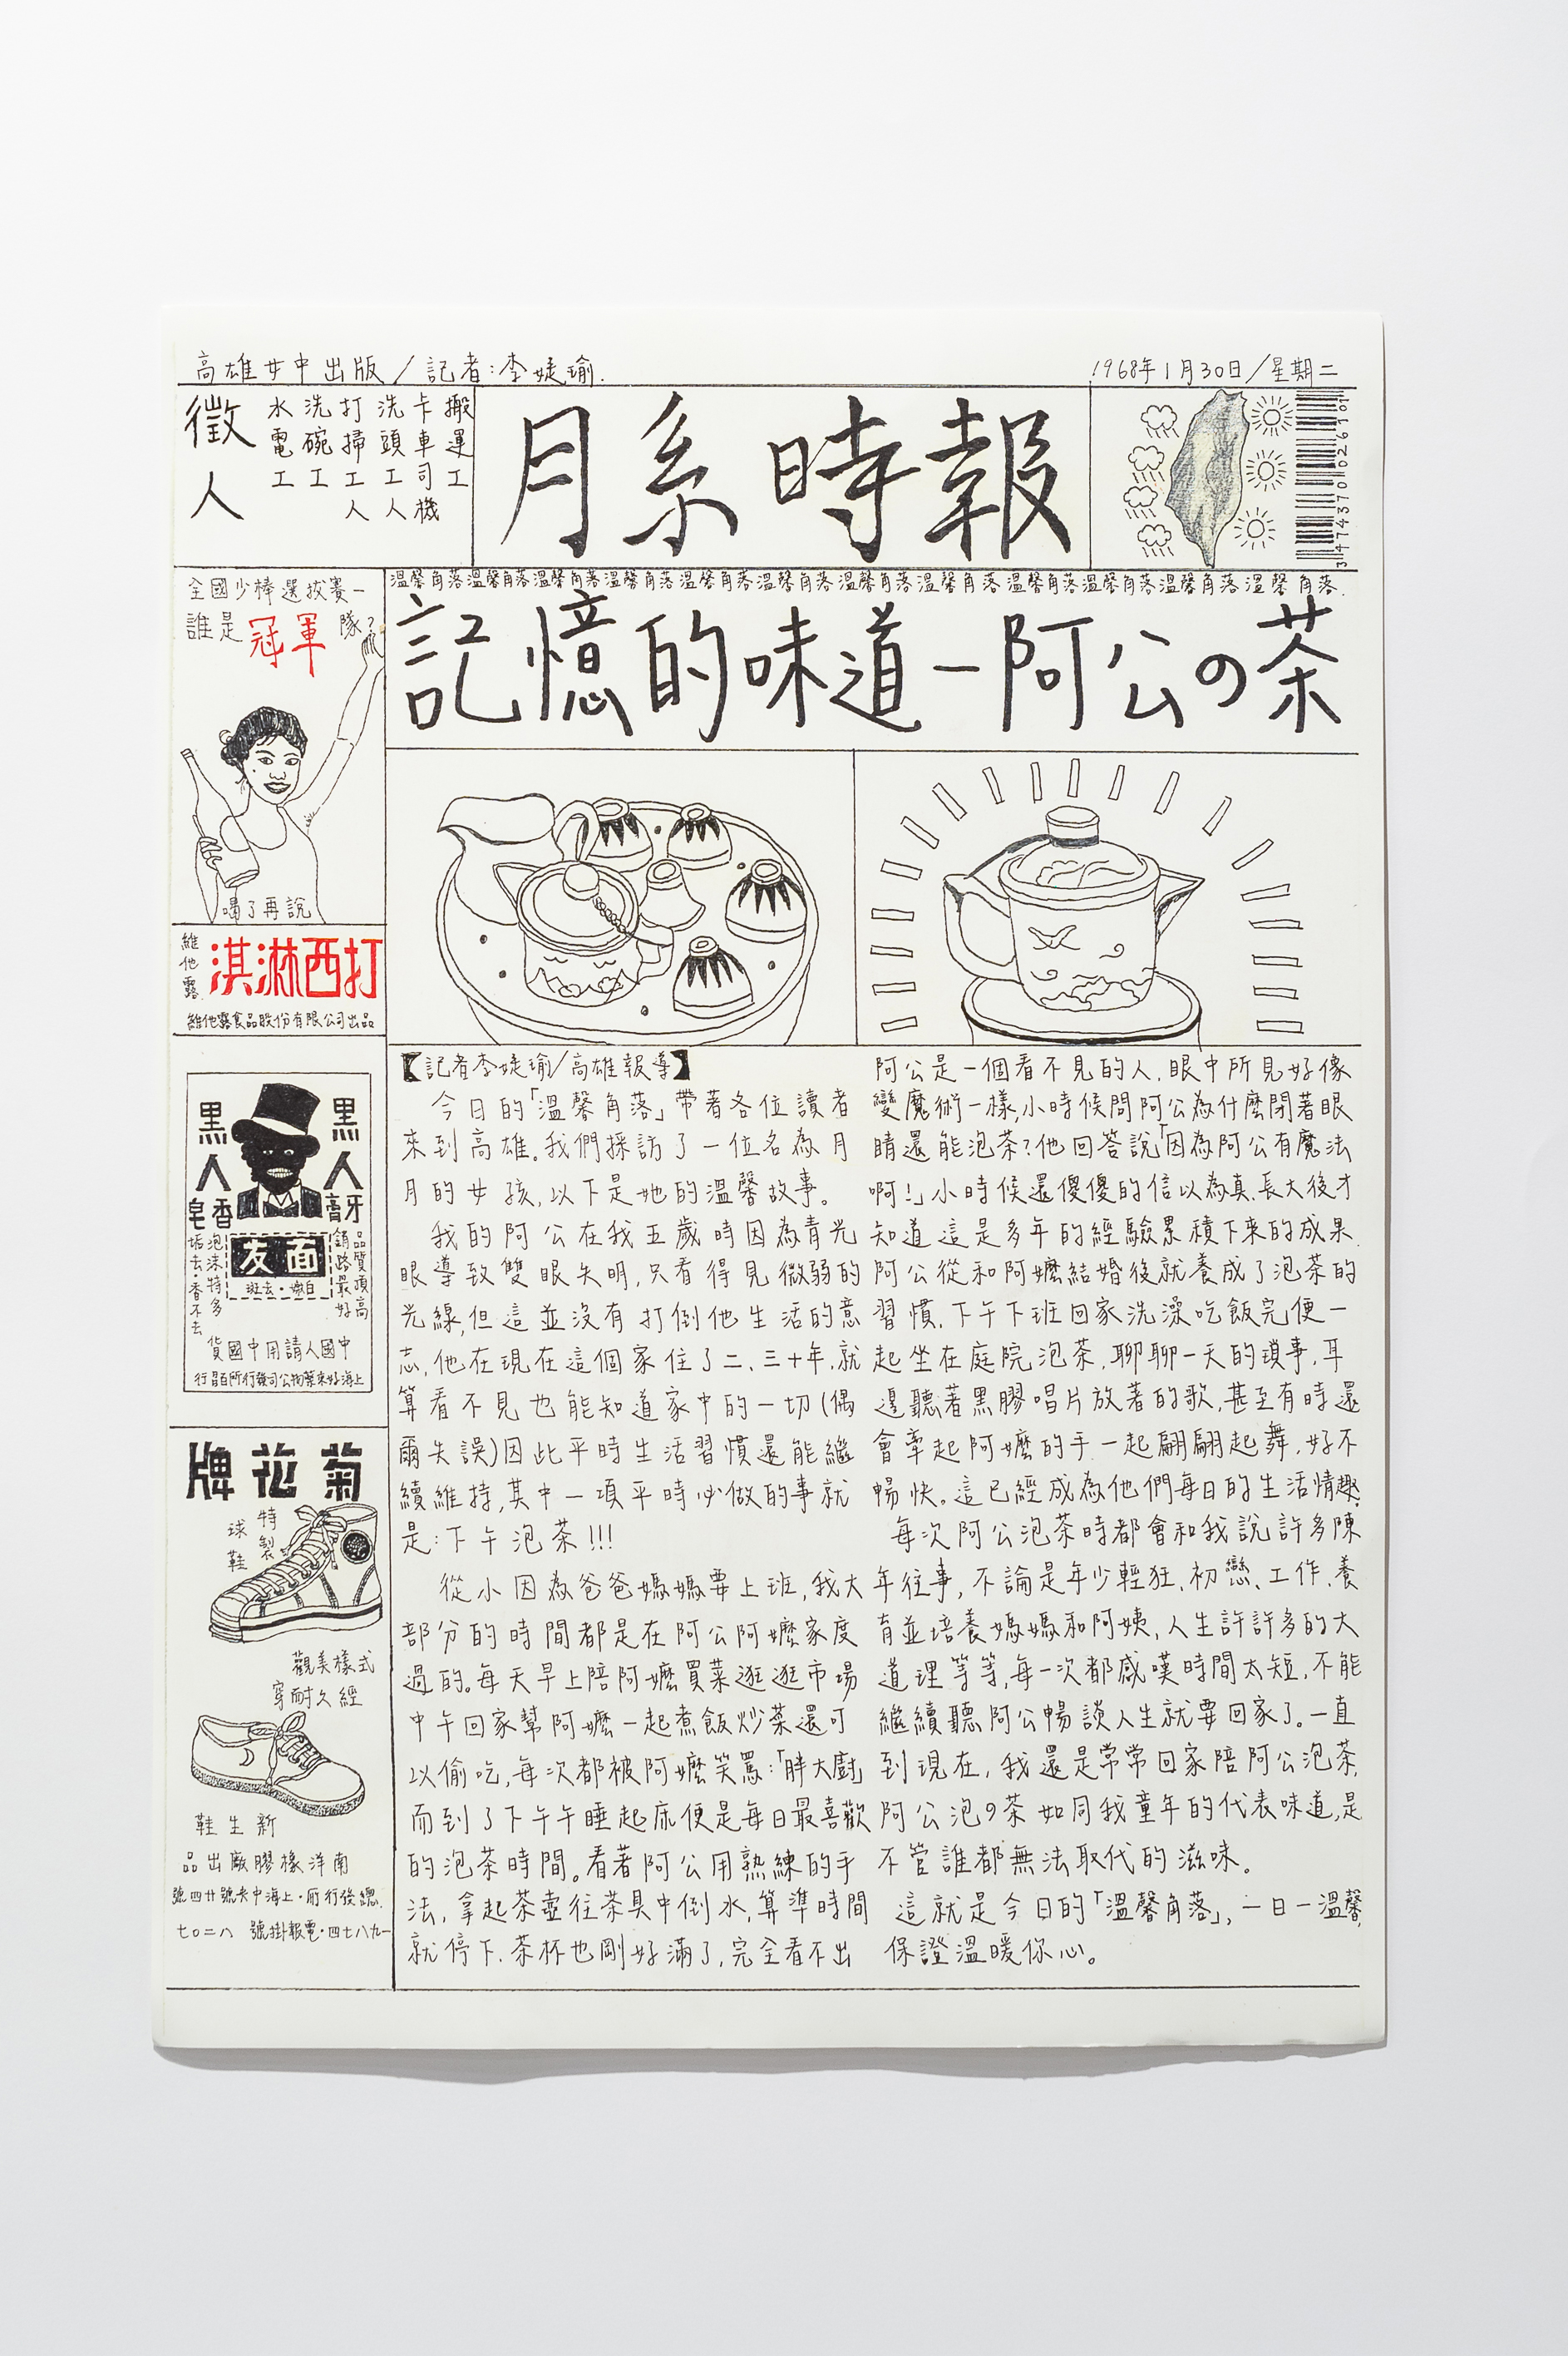 高雄女中出版／記者：李婕瑜.
1968年1月30日／星期二
徵人
搬運工
卡車司機
洗頭工人
打掃工人
洗碗工
水電工
月系時報
3474370102610
全國少棒選拔賽－
誰是冠軍隊？
喝了再說
維他露
淇淋西打
維他露食品股份有限公司出品
黑人牙膏
黑人香皂
品質頭高
銷路最好
面友
白嫩·去斑
泡沫特多
垢去·香不去
中國人請用中國貨
菊花牌
特製
球鞋
觀美樣式
穿耐久經
新生鞋
南洋橡膠廠出品
溫馨角落溫馨角落溫馨角落溫馨角落溫馨角落溫馨角落溫馨角落溫馨角落溫馨角落溫馨角落溫馨角落溫馨角落.
記憶的味道－阿公の茶
【記者李婕瑜/高雄報導】
今日的「溫馨角落」帶著各位讀者
來到高雄。我們採訪了一位名為月
月的女孩，以下是她的溫馨故事。
我的阿公在我五歲時因為青光
眼導致雙眼失明，只看得見微弱的
光線，但這並沒有打倒他生活的意
志，他在現在這個家住了二、三十年，就
算看不見也能知道家中的一切(偶
爾失誤)因此平時生活習慣還能繼
續維持，其中一項平時必做的事就
是：下午泡茶!!!
從小因為爸爸媽媽要上班，我大
部分的時間都是在阿公阿嬤家度
過的。每天早上陪阿嬤買菜逛逛市場
中午回家幫阿嬤一起煮飯炒菜還可
以偷吃，每次都被阿嬤笑罵：「胖大廚」
而到了下午午睡起床便是每日最喜歡
的泡茶時間。看著阿公用熟練的手
法，拿起茶壺往茶具中倒水，算準時間
就停下，茶杯也剛好滿了，完全看不出
阿公是一個看不見的人，眼中所見好像
變魔術一樣，小時候問阿公為什麼閉著眼
睛還能泡茶？他回答說「因為阿公有魔法
啊！」小時候還傻傻的信以為真，長大後才
知道這是多年的經驗累積下來的成果.
阿公從和阿嬤結婚後就養成了泡茶的
習慣，下午下班回家洗澡吃飯完便一
起坐在庭院泡茶，聊聊一天的瑣事，耳
邊聽著黑膠唱片放著的歌，甚至有時還
會牽起阿嬤的手一起翩翩起舞，好不
暢快。這已經成為他們每日的生活情趣.
每次阿公泡茶時都會和我說許多陳
年往事，不論是年少輕狂、初戀、工作、養
育並培養媽媽和阿姨，人生許許多的大
道理等等，每一次都感嘆時間太短，不能
繼續聽阿公暢談人生就要回家了。一直
到現在，我還是常常回家陪阿公泡茶，
阿公泡の茶如同我童年的代表味道，是
不管誰都無法取代的滋味。
這就是今日的「溫馨角落」，一日一溫馨，
保證溫暖你心。